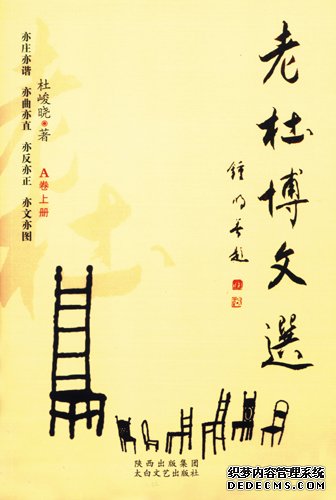 老杜博文選
鍾明善题
杜峻晓●著
A卷上册
亦庄亦谐 亦曲亦直 亦反亦正 亦文亦图
陕西出版集团
太白文艺出版社
织梦内容管理系统
DEDECMS.COM